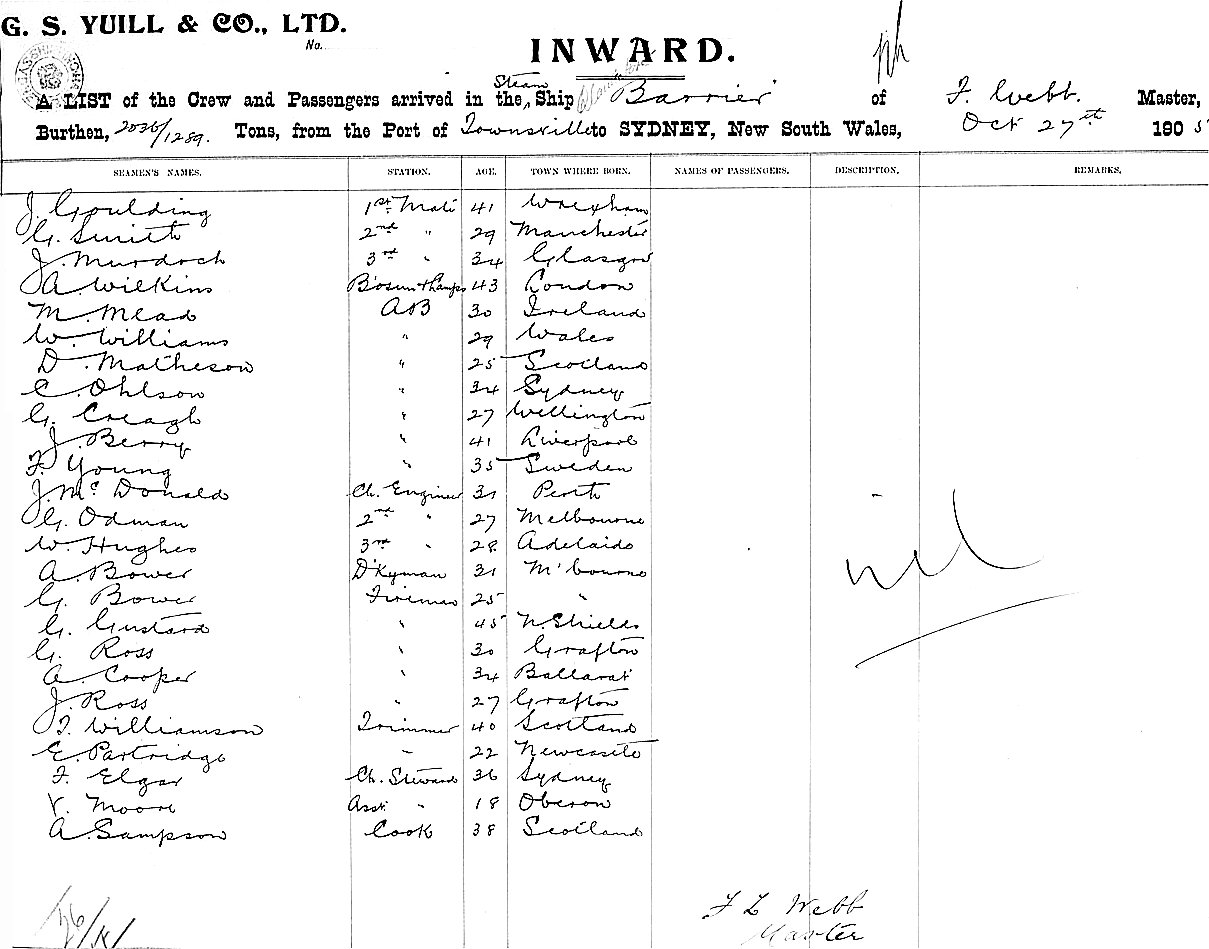 G. S. YUILL & CO., LTD.
No.
INWARD.
A LIST of the Crew and Passengers arrived in the Steam Ship Barrier of F. Webb. Master,
Burthen, 2036/1289. Tons, from the Port of Townsville to SYDNEY, New South Wales, Oct 27th 1905
SEAMEN'S NAMES. STATION. AGE. TOWN WHERE BORN. NAMES OF PASSENGERS. DESCRIPTION. REMARKS.
J. Goulding 1st Mate 41 Wrexham
G. Smith 2nd " 29 Manchester
J. Murdoch 3rd " 34 Glasgow
A. Wilkins Bosun & Lamps 43 London
M. Mead AB 30 Ireland
W. Williams " 29 Wales
D. Matheson " 25 Scotland
C. Ohlson " 34 Sydney
G. Creagh " 27 Wellington
J. Berry " 41 Liverpool
F. Young " 35 Sweden
J. McDonald Ch. Engineer 31 Perth
G. Odman 2nd " 27 Melbourne
W. Hughes 3rd " 28 Adelaide
A. Bower D'kyman 31 M'bourne
G. Bower Fireman 25 "
G. Gustard " 45 N. Shields
G. Ross " 30 Grafton
A. Cooper " 34 Ballarat
J. Ross " 27 Grafton
J. Williamson Trimmer 40 Scotland
E. Partridge " 22 Newcastle
F. Elgar Ch. Steward 36 Sydney
V. Moore Asst. " 18 Oberon
A. Sampson Cook 38 Scotland
nil
F L Webb
Master